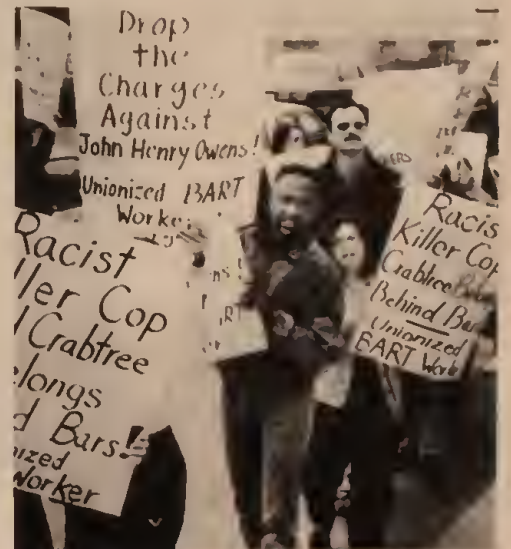 Drop
the
Charges
Against
John Henry Owens!
Unionized BART
Racist
ller Cop
Crabtree
elongs
d Bars!
nized
Worker
Racis
Killer Cop
Crabtree
Behind Bar
Unionized
BART Work